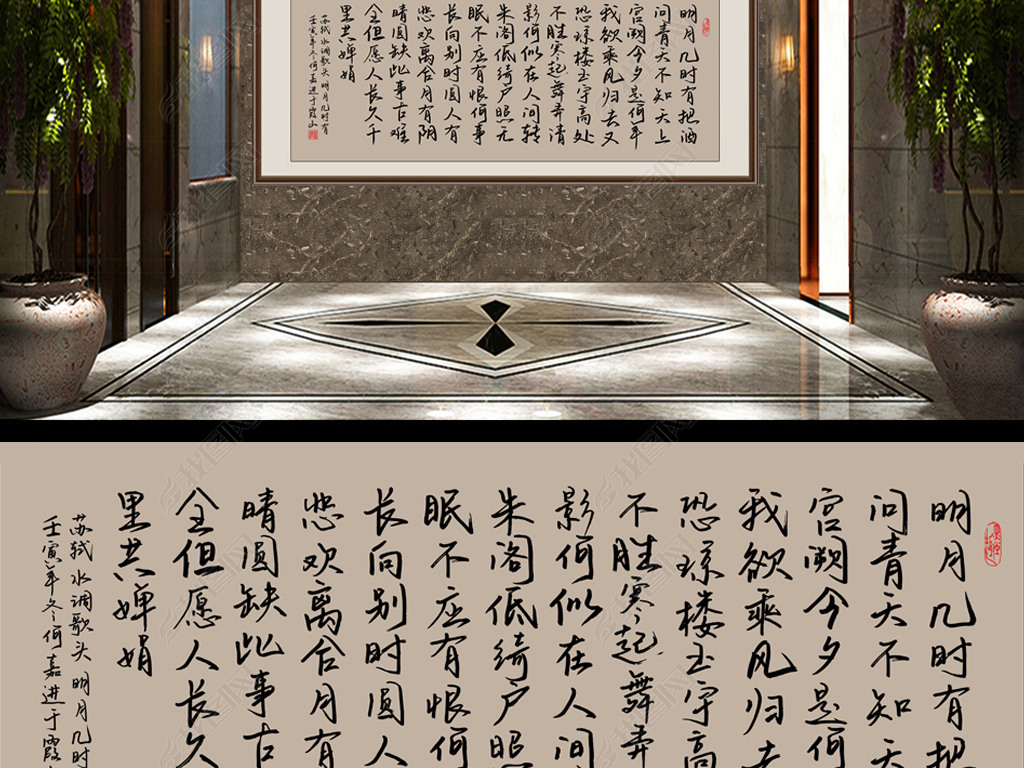 明月几时有把酒
问青天不知天上
宫阙今夕是何年
我欲乘风归去又
恐琼楼玉宇高处
不胜寒起舞弄清
影何似在人间转
朱阁低绮户照无
眠不应有恨何事
长向别时圆人有
悲欢离合月有阴
晴圆缺此事古难
全但愿人长久千
里共婵娟
苏轼水调歌头明月几时有
壬寅年冬何嘉进于霞山
明月几时有把
问青天不知天
宫阙今夕是何
我欲乘风归去
恐琼楼玉宇高
不胜寒起舞弄
影何似在人间
朱阁低绮户照
眠不应有恨何
长向别时圆人
悲欢离合月有
晴圆缺此事古
全但愿人长久
里共婵娟
苏轼水调歌头明月几时
壬寅年冬何嘉进于霞